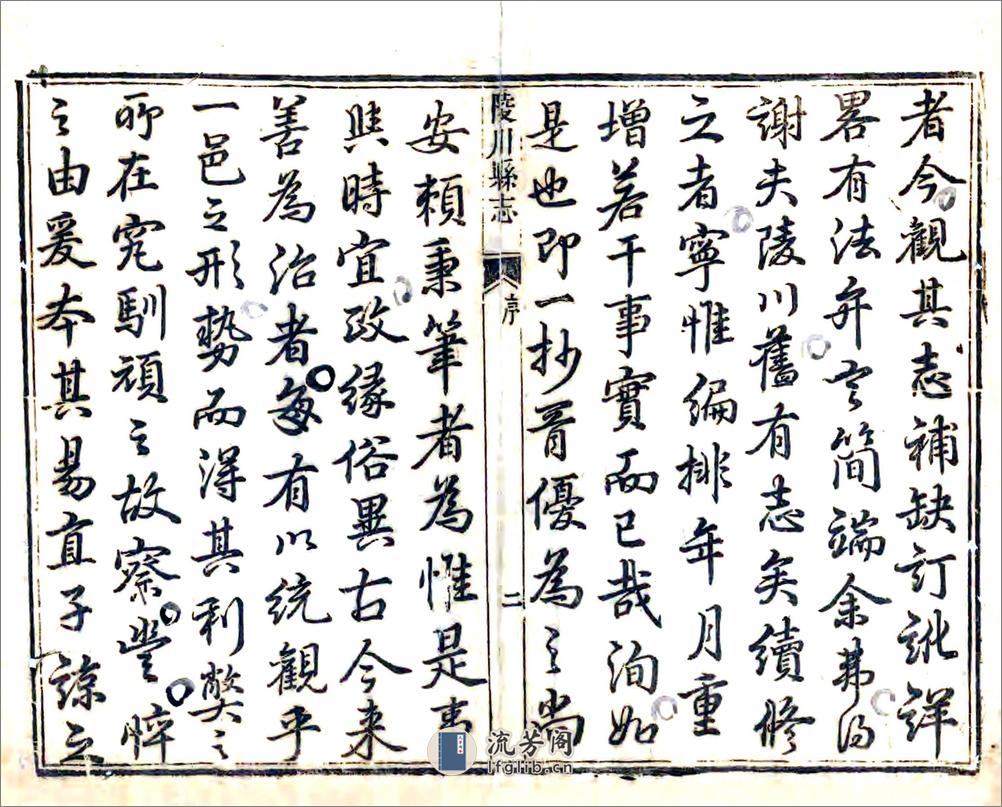 者今觀其志補缺訂訛詳
畧有法弁言簡端余弗得
謝夫陵川舊有志矣續修
之者寧惟編排年月重
增若干事實而已哉洵如
是也即一抄胥優為之尚
陵川縣志
序
二
安賴秉筆者為惟是事
與時宜政緣俗異古今来
善為治者每有以統觀乎
一邑之形勢而得其利獘之
所在究馴頑之故察豐悴
之由爰本其易直子諒之
流芳阁
lfglib.cn